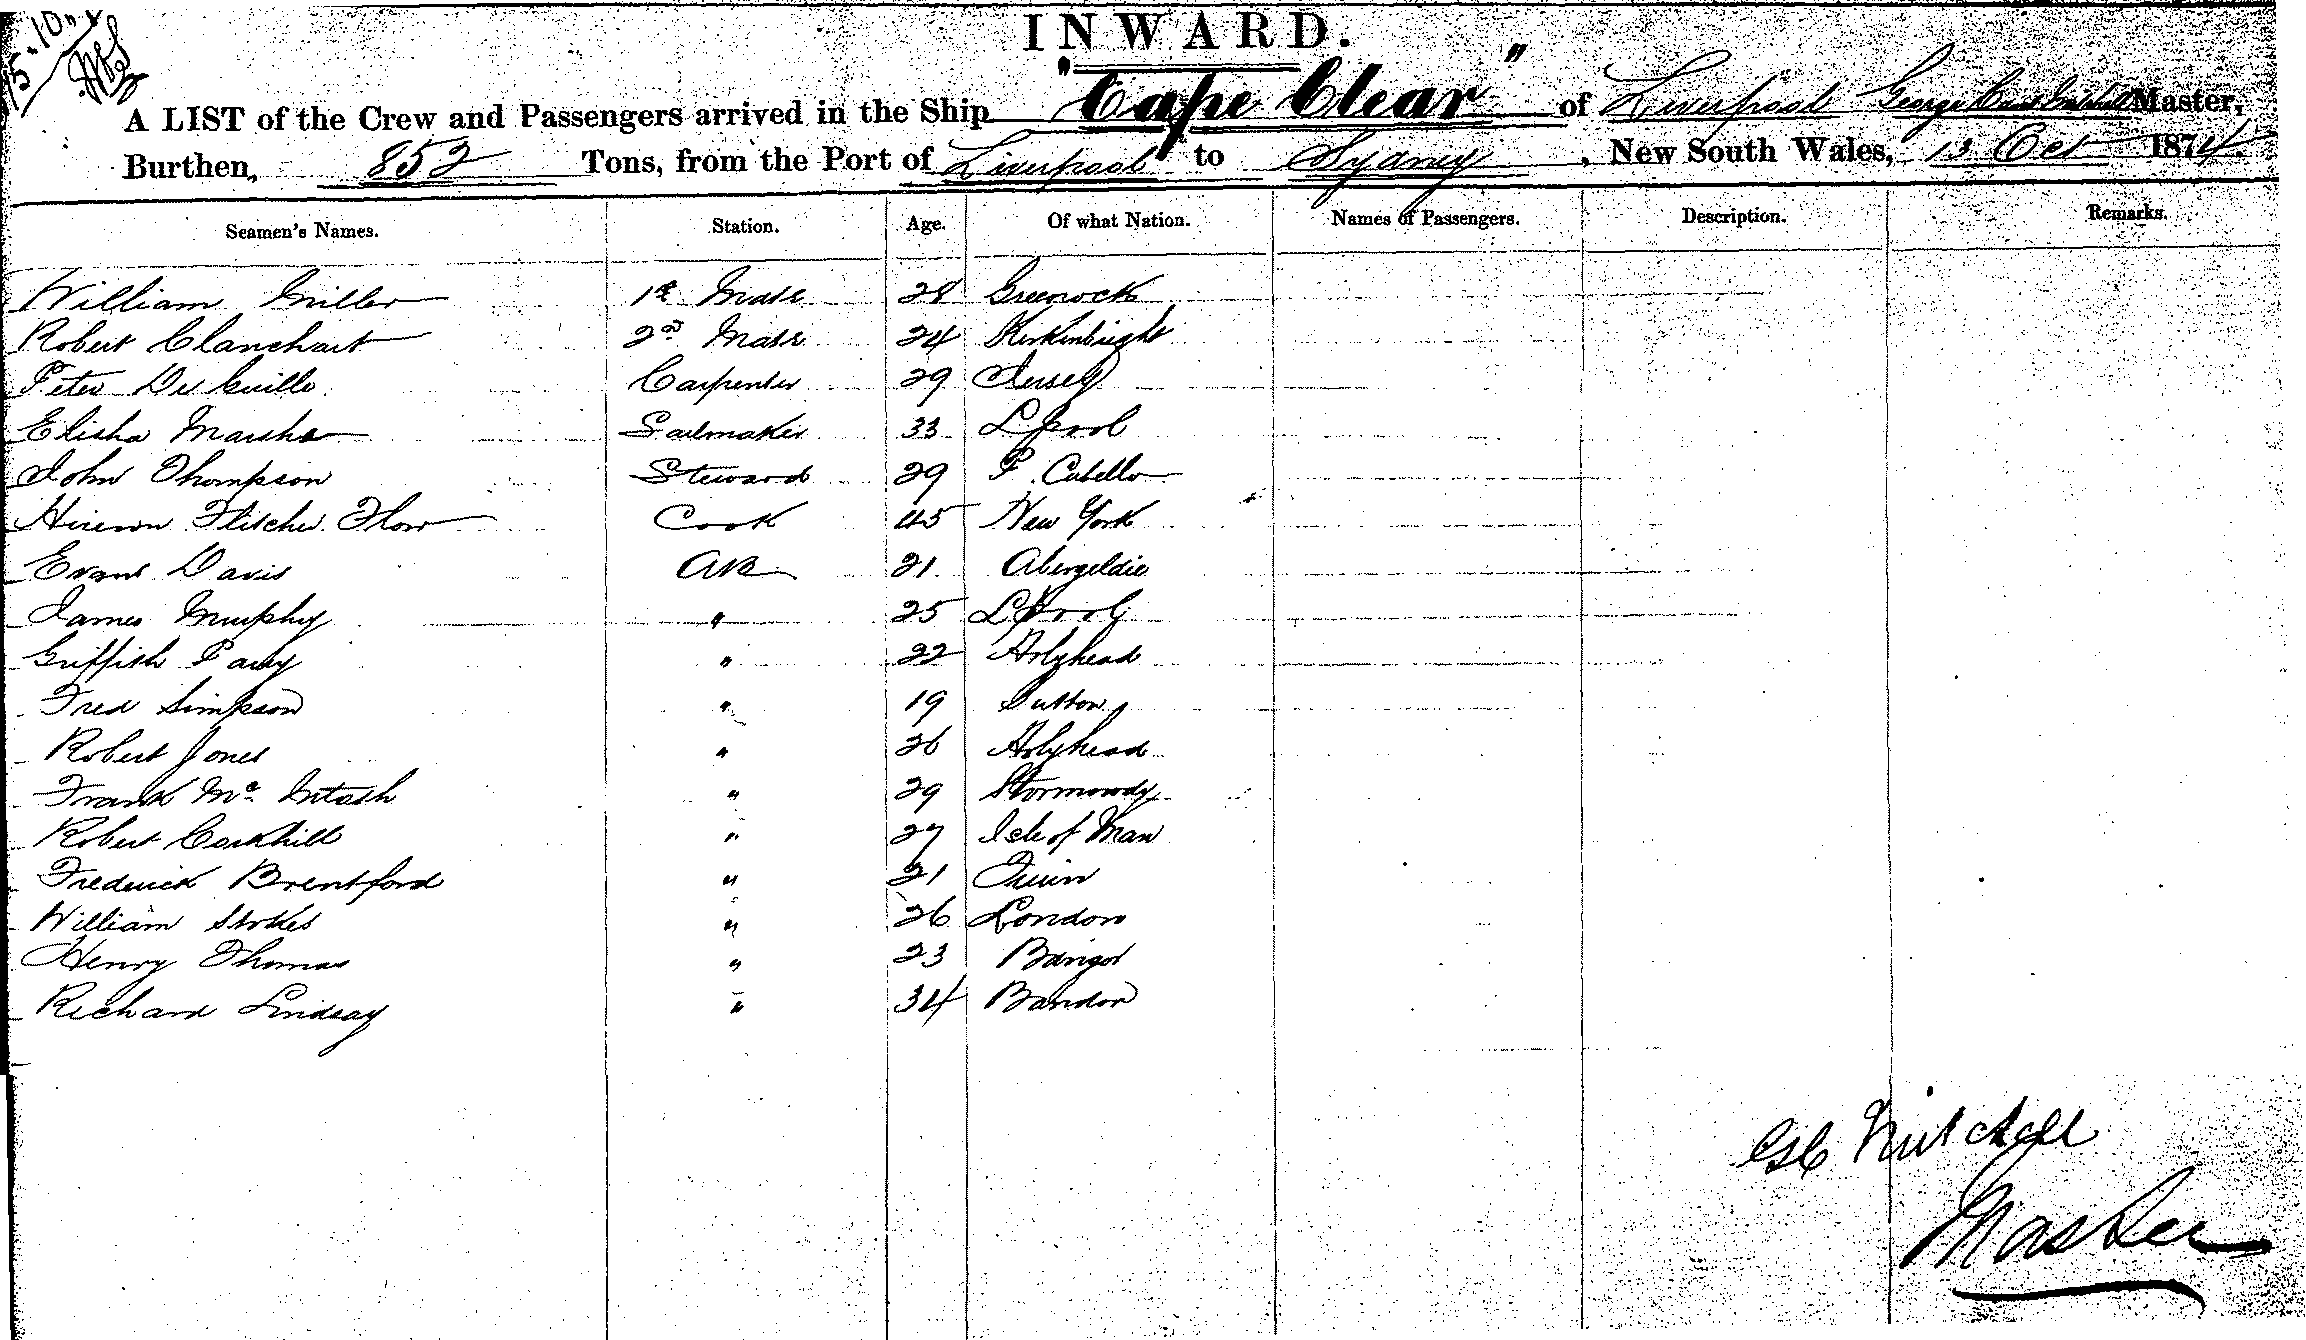 15.10.
INWARD.
A LIST of the Crew and Passengers arrived in the Ship "Cape Clear" of Liverpool George Mitchell Master,
Burthen, 852 Tons, from the Port of Liverpool to Sydney, New South Wales, 13 Oct 1874.
Seamen's Names. Station. Age. Of what Nation. Names of Passengers. Description. Remarks.
William Miller 1st Mate 28 Greenock
Robert Clanchart 2nd Mate 24 Kirkinbright
Peter Carpenter 29 Jersey
Elisha Marsh Sailmaker 33 LPool
John Thompson Steward 29 P. Cabello
Fletcher Flow Cook 45 New York
Evans Davis AB 21 Abergeldie
James Murphy " 25 LPool
Griffith Parry " 22 Holyhead
Fred Simpson " 19 Sutton
Robert Jones " 26 Holyhead
Frank Mc Intosh " 29
Robert Corkhill " 27 Isle of Man
Frederick Brentford " 21
William Stokes " 26 London
Henry Thomas " 23 Bangor
Richard Lindsay " 34 Bandon
Mitchell
Master